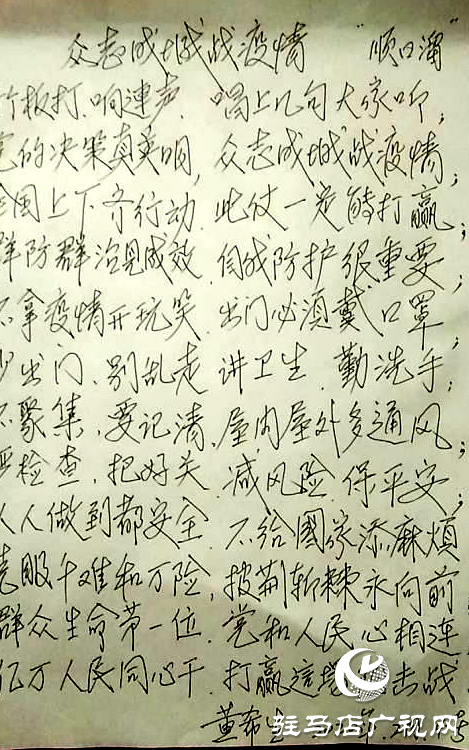 众志成城战疫情 "顺口溜"
竹板打.响連声.唱上几句大家听;
党的决策真英明,众志成城战疫情;
全国上下齐行动.此仗一定能打赢;
群防群治見成效.自我防护很重要;
不拿疫情开玩笑.出门必须戴口罩;
少出门、别乱走.讲卫生.勤洗手;
不聚集,要记清.屋内屋外多通风;
严检查,把好关.减风险.保平安;
人人做到都安全.不给國家添麻煩
克服千难和万险,披荆斩棘永向前
群众生命第一位.党和人民心相連
亿万人民同心干.打赢這場 击战
黄
驻马店广视网